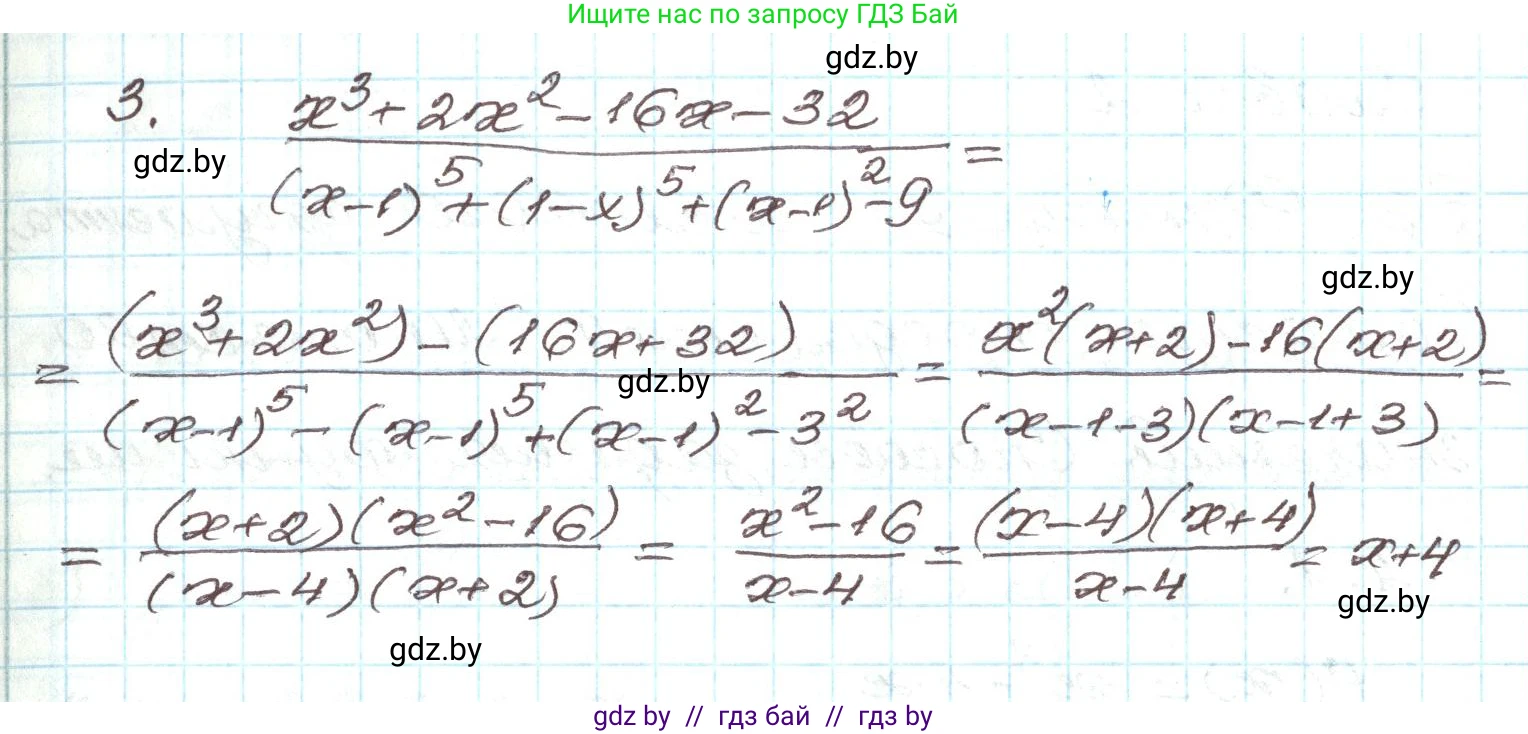 Ищите нас по запросу ГДЗ Бай
gdz.by
3. (x³+2x²-16x-32)/((x-1)⁵+(1-x)⁵+(x-1)²-9) =
gdz.by
gdz.by
= ((x³+2x²)-(16x+32))/((x-1)⁵-(x-1)⁵+(x-1)²-3²) = (x²(x+2)-16(x+2))/((x-1-3)(x-1+3)) =
gdz.by
= ((x+2)(x²-16))/((x-4)(x+2)) = (x²-16)/(x-4) = ((x-4)(x+4))/(x-4) = x+4
gdz.by
gdz.by
gdz by // гдз бай // гдз by